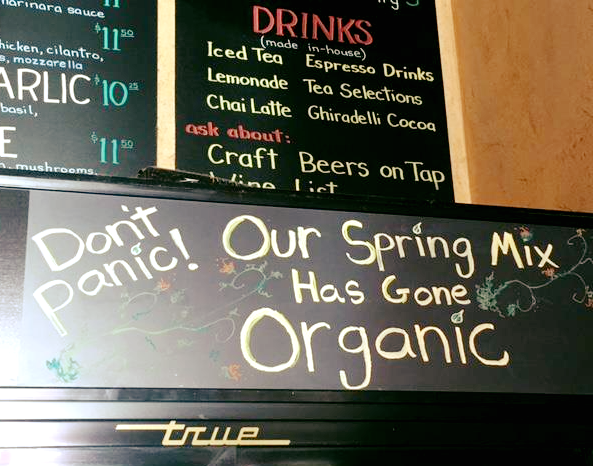 marinara sauce
$11.50
chicken, cilantro,
mozzarella
ARLIC $10.25
basil,
$11.50
mushrooms,
DRINKS
(made in-house)
Iced Tea Espresso Drinks
Lemonade Tea Selections
Chai Latte Ghiradelli Cocoa
ask about:
Craft Beers on Tap
Wine List
Don't
panic!
Our Spring Mix
Has Gone
Organic
true